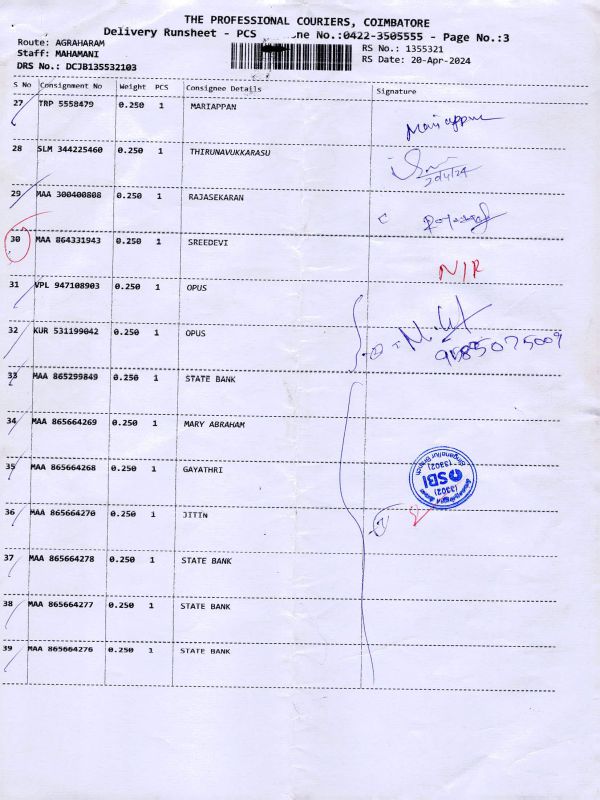 THE PROFESSIONAL COURIERS, COIMBATORE
Delivery Runsheet - PCS ne No.:0422-3505555 - Page No.:3
Route: AGRAHARAM
Staff: MAHAMANI
DRS No.: DCJB135532103
RS No.: 1355321
RS Date: 20-Apr-2024
S No Consignment No Weight PCS Consignee Details Signature
27 TRP 5558479 0.250 1 MARIAPPAN Mariappan
28 SLM 344225460 0.250 1 THIRUNAVUKKARASU
20/4/24
29 MAA 300400808 0.250 1 RAJASEKARAN
30 MAA 864331943 0.250 1 SREEDEVI N/R
31 VPL 947108903 0.250 1 OPUS
32 KUR 531199042 0.250 1 OPUS
33 MAA 865299849 0.250 1 STATE BANK
34 MAA 865664269 0.250 1 MARY ABRAHAM
35 MAA 865664268 0.250 1 GAYATHRI
SBI
(13302)
36 MAA 865664270 0.250 1 JITIN
37 MAA 865664278 0.250 1 STATE BANK
38 MAA 865664277 0.250 1 STATE BANK
39 MAA 865664276 0.250 1 STATE BANK